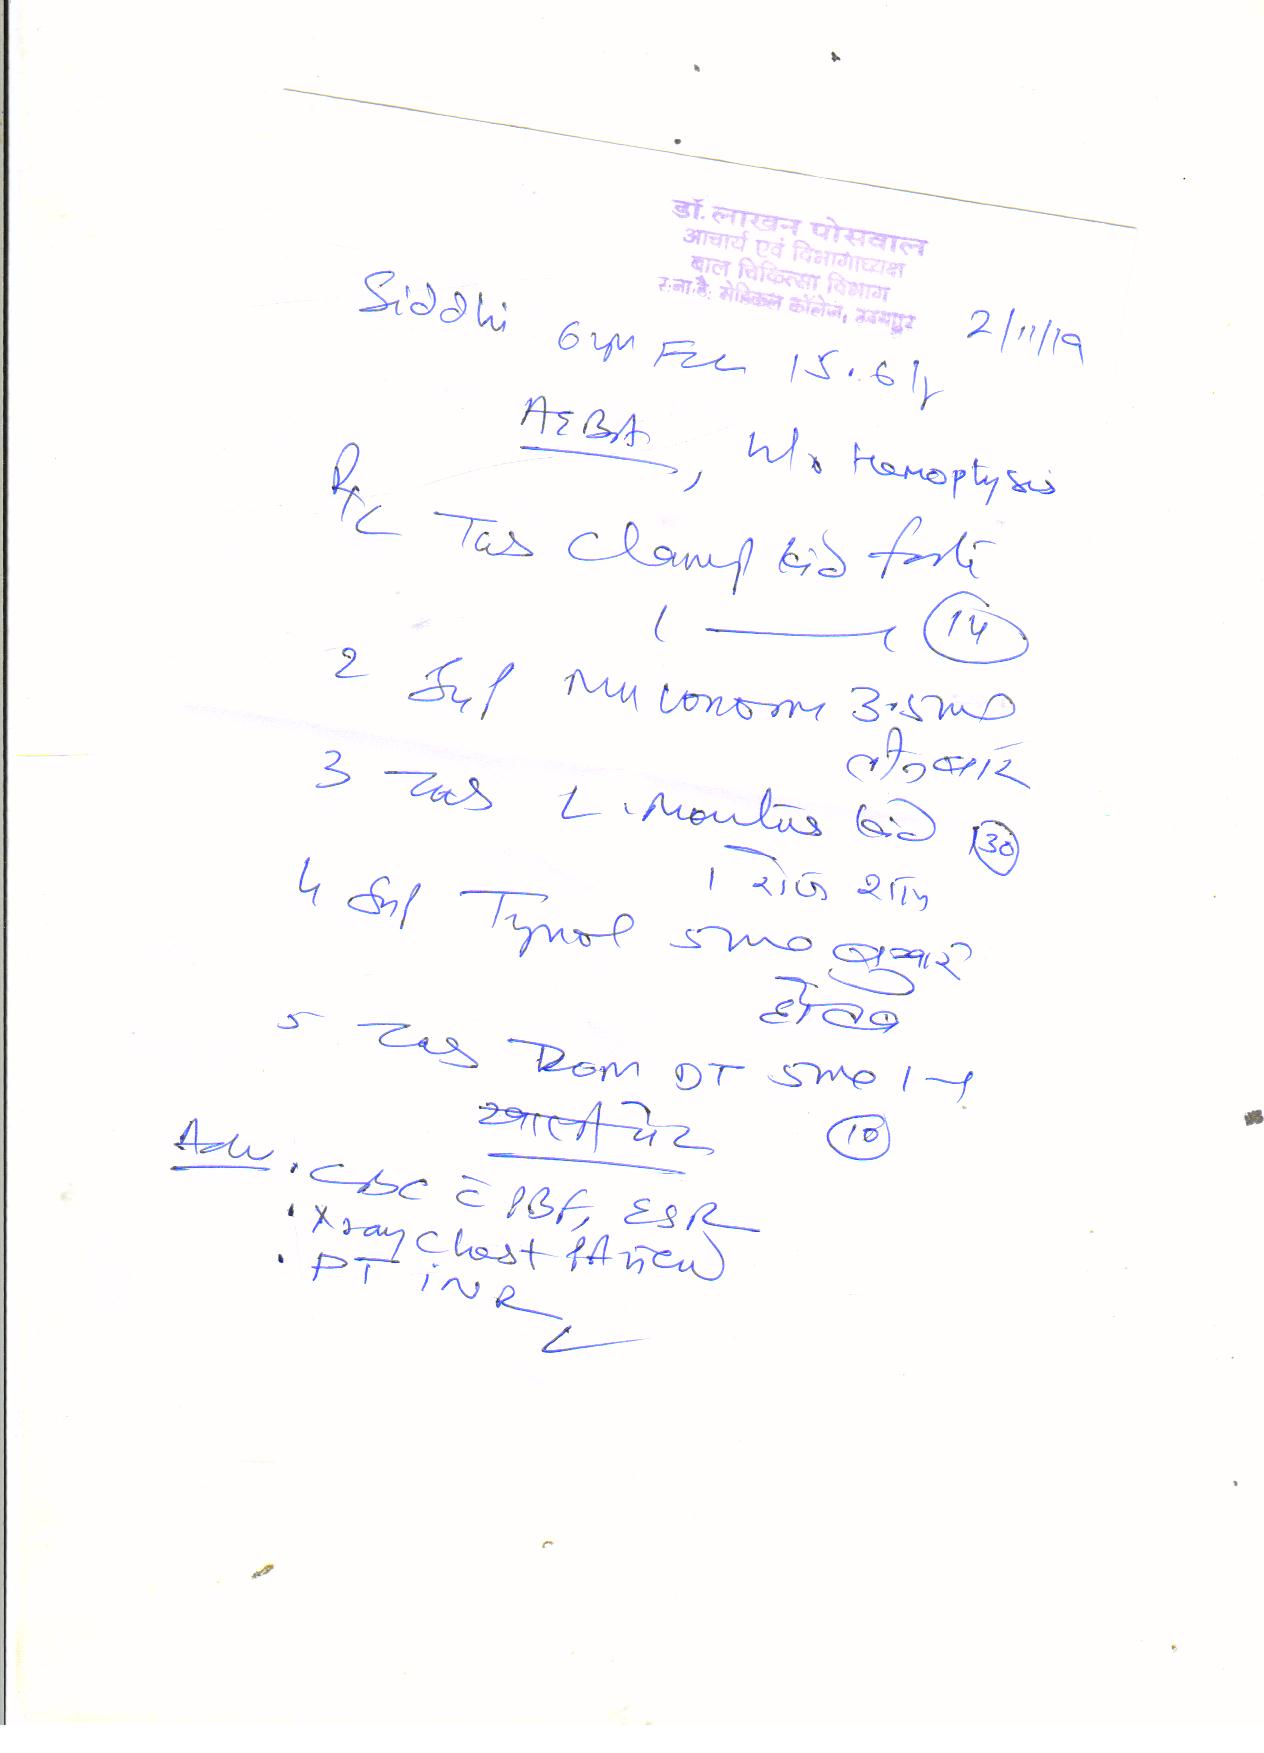 डॉ. लाखन पोसवाल
आचार्य एवं विभागाध्यक्ष
बाल चिकित्सा विभाग
र.ना.टै. मेडिकल कॉलेज, उदयपुर
2/11/19
Siddhi 6 yr 15.6
AEBA, H/o Hemoptysis
Rx Tab Clamp kid forte
1 — 1 (14)
2 Syp Muconorm 3.5ml
तीन बार
3 Tab L-Montus kid (30)
1 रोज शाम
4 Syp Tynol 5ml बुखार
5 Tab Dom DT 5mg 1-1
खाली पेट (10)
Adv . CBC c̄ PBF, ESR
. Xray Chest PA view
. PT INR